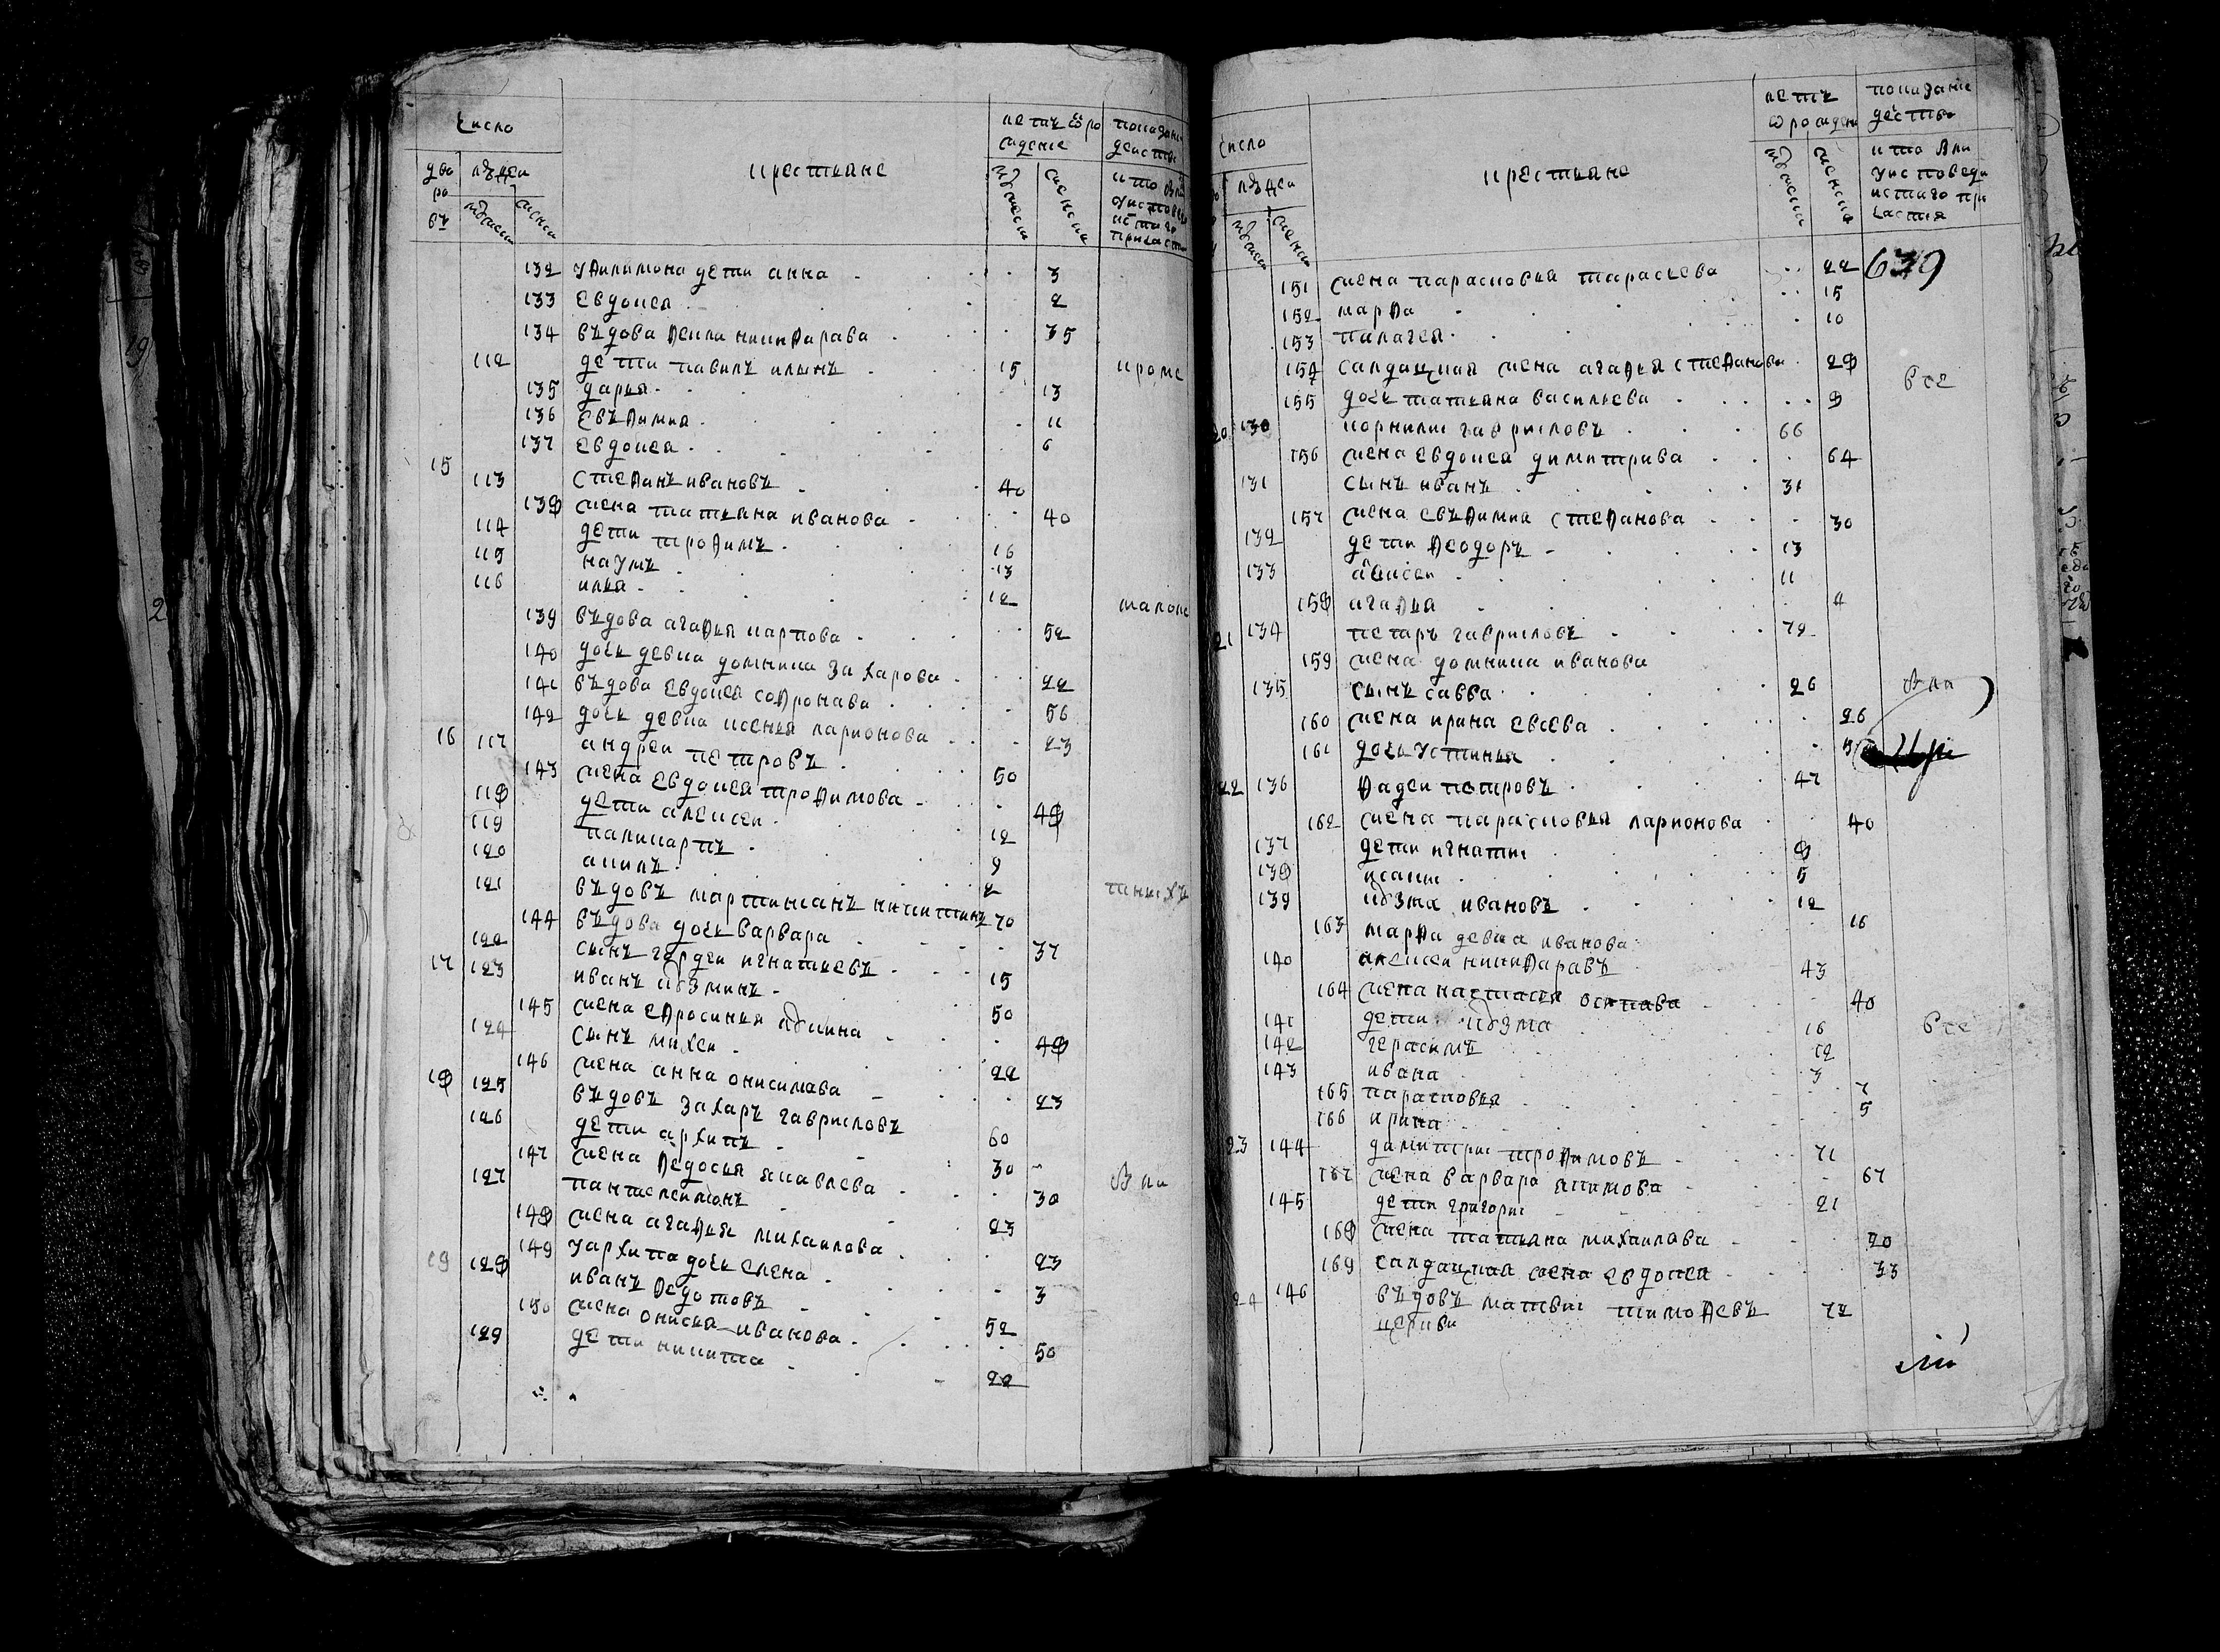 число
крестьяне
летъ ѿ ро
ждение
показани
действ
дво
ро
въ
людеи
мужеск
женск
мужеск
женска
132 у Филимона дети анна 3
133 евдокея 2
134 въдова фекла никифарава 35
112 дети павилъ ильинъ 15 кроме
135 дарья 13
136 евъфимия 11
137 евдокея 6
15 113 стефанъ ивановъ 40
138 жена татьяна иванова 40
114 дети трофимъ 16
115 наумъ 13
116 илья 12
малоле
139 въдова агафья карпова 52
140 дочь девка домника захарова 22
141 въдова евдокея софронава 56
142 дочь девка ксенья ларионова 23
16 117 андреи петровъ 50
143 жена евдокея трофимова 48
118 дети алексеи 12
119 паликарпъ 9
120 акилъ 2
121 въдовъ мартимианъ никитинъ 70
144 въдова дочь варвара 37
122 сынъ гордеи игнатьевъ 15
17 123 иванъ кузминъ 50
145 жена ефросинья лукина 48
124 сынъ михеи 22
146 жена анна онисимава 23
18 125 въдовъ захаръ гавриловъ 60
126 дети архипъ 30
147 жена федосья яковлева 30
127 пантелеимонъ 23
148 жена агафья михаилова 23
149 у архипа дочь елена 3
19 128 иванъ федотовъ 52
150 жена онисья иванова 50
129 дети никита 22
число
крестьяне
летъ
ѿ рожден
показание
действо
людеи
мужеск
женск
мужеска
женска
кто были
у исповеди
и стаго при
частия
639
151 жена парасковья тарасьева 22
152 марфа 15
153 палагея 10
154 салдацкая жена агафья стефанова 28
все
155 дочь татьяна васильева 8
20 130 корнили гавриловъ 66
156 жена евдокея димитрива 64
131 сынъ иванъ 31
157 жена евъфимия стефанова 30
132 дети феодоръ 13
133 алексеи 11
158 агафья 4
21 134 петаръ гавриловъ 72
159 жена домника иванова
135 сынъ савва 26
160 жена ирина евсева 26
161 дочь устинья
22 136 фадеи петровъ 47
162 жена парасковья ларионова 40
137 дети игнати 8
138 исаии 5
139 кузма ивановъ 12
163 марфа девка иванова 16
140 алексеи никифаравъ 43
164 жена настасья осипава 40
141 дети кузма 16
все
142 герасимъ 12
143 ивана 3
165 парасковья 7
166 ирина 5
23 144 димитри трофимовъ 71
167 жена варвара акимова 67
145 дети григори 21
168 жена татьяна михаилава 20
169 салдацкая жена евдокея 33
24 146 въдовъ матвеи тимофевъ 72
церкви